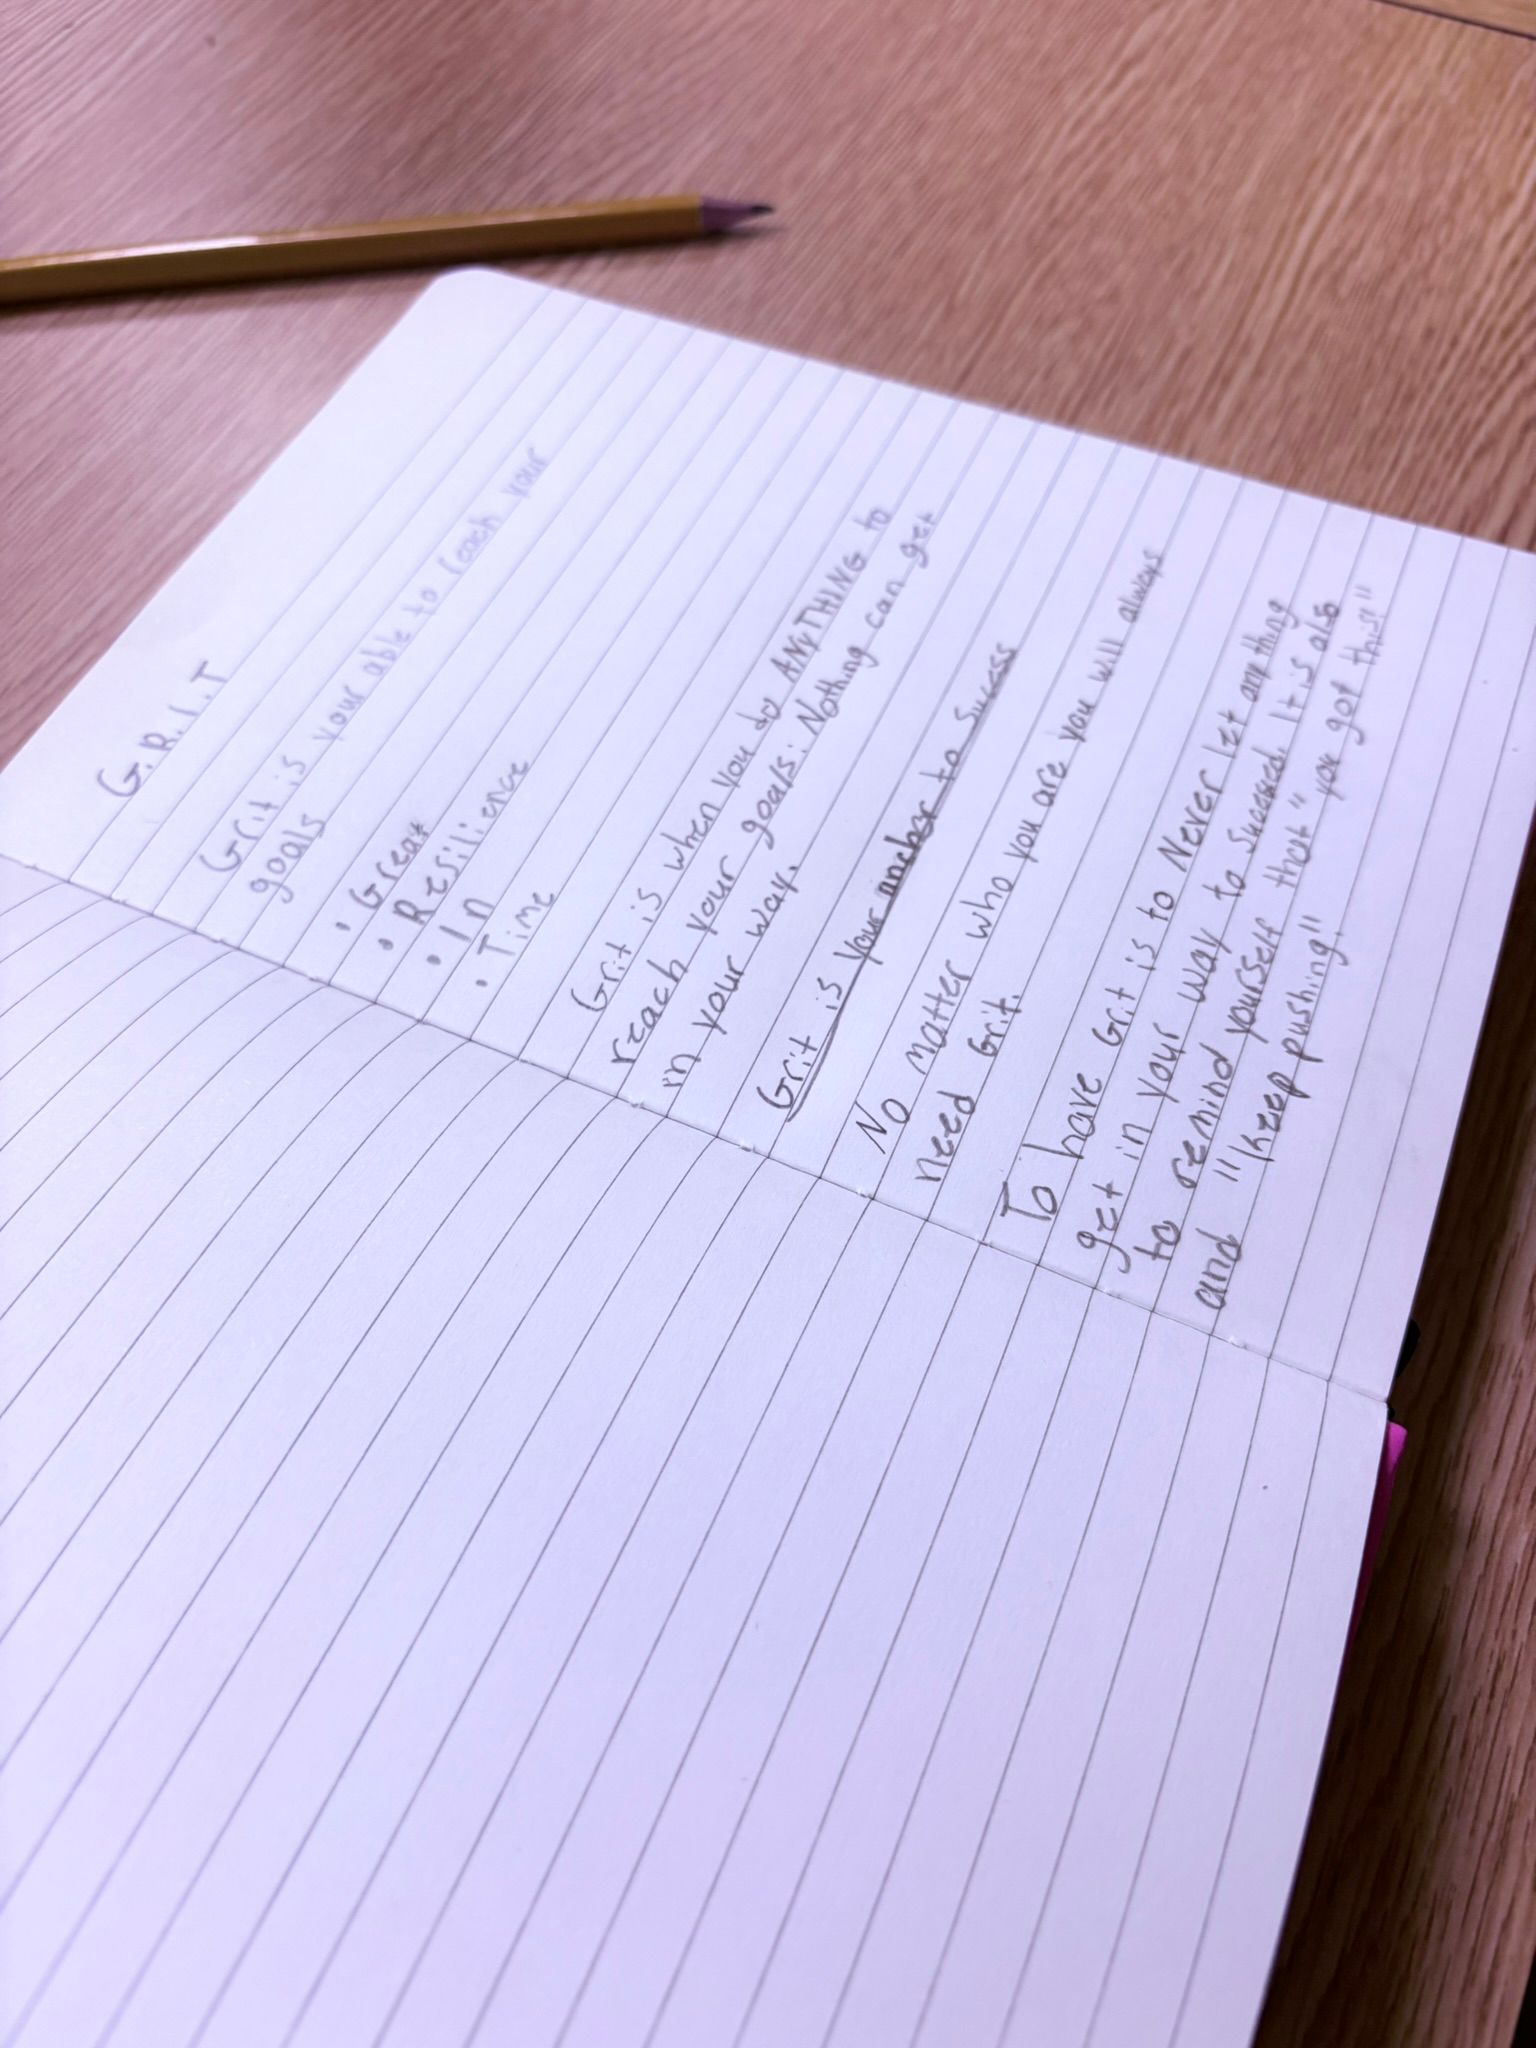 G.R.I.T
Grit is your able to reach your
goals
• Great
• Resilience
• In
• Time
Grit is when you do ANYTHING to
reach your goals. Nothing can get
in your way.
Grit is your anchor to success
No matter who you are you will always
need Grit.
To have Grit is to Never let anything
get in your way to succeed. It is also
to remind yourself that "you got this"
and "keep pushing"